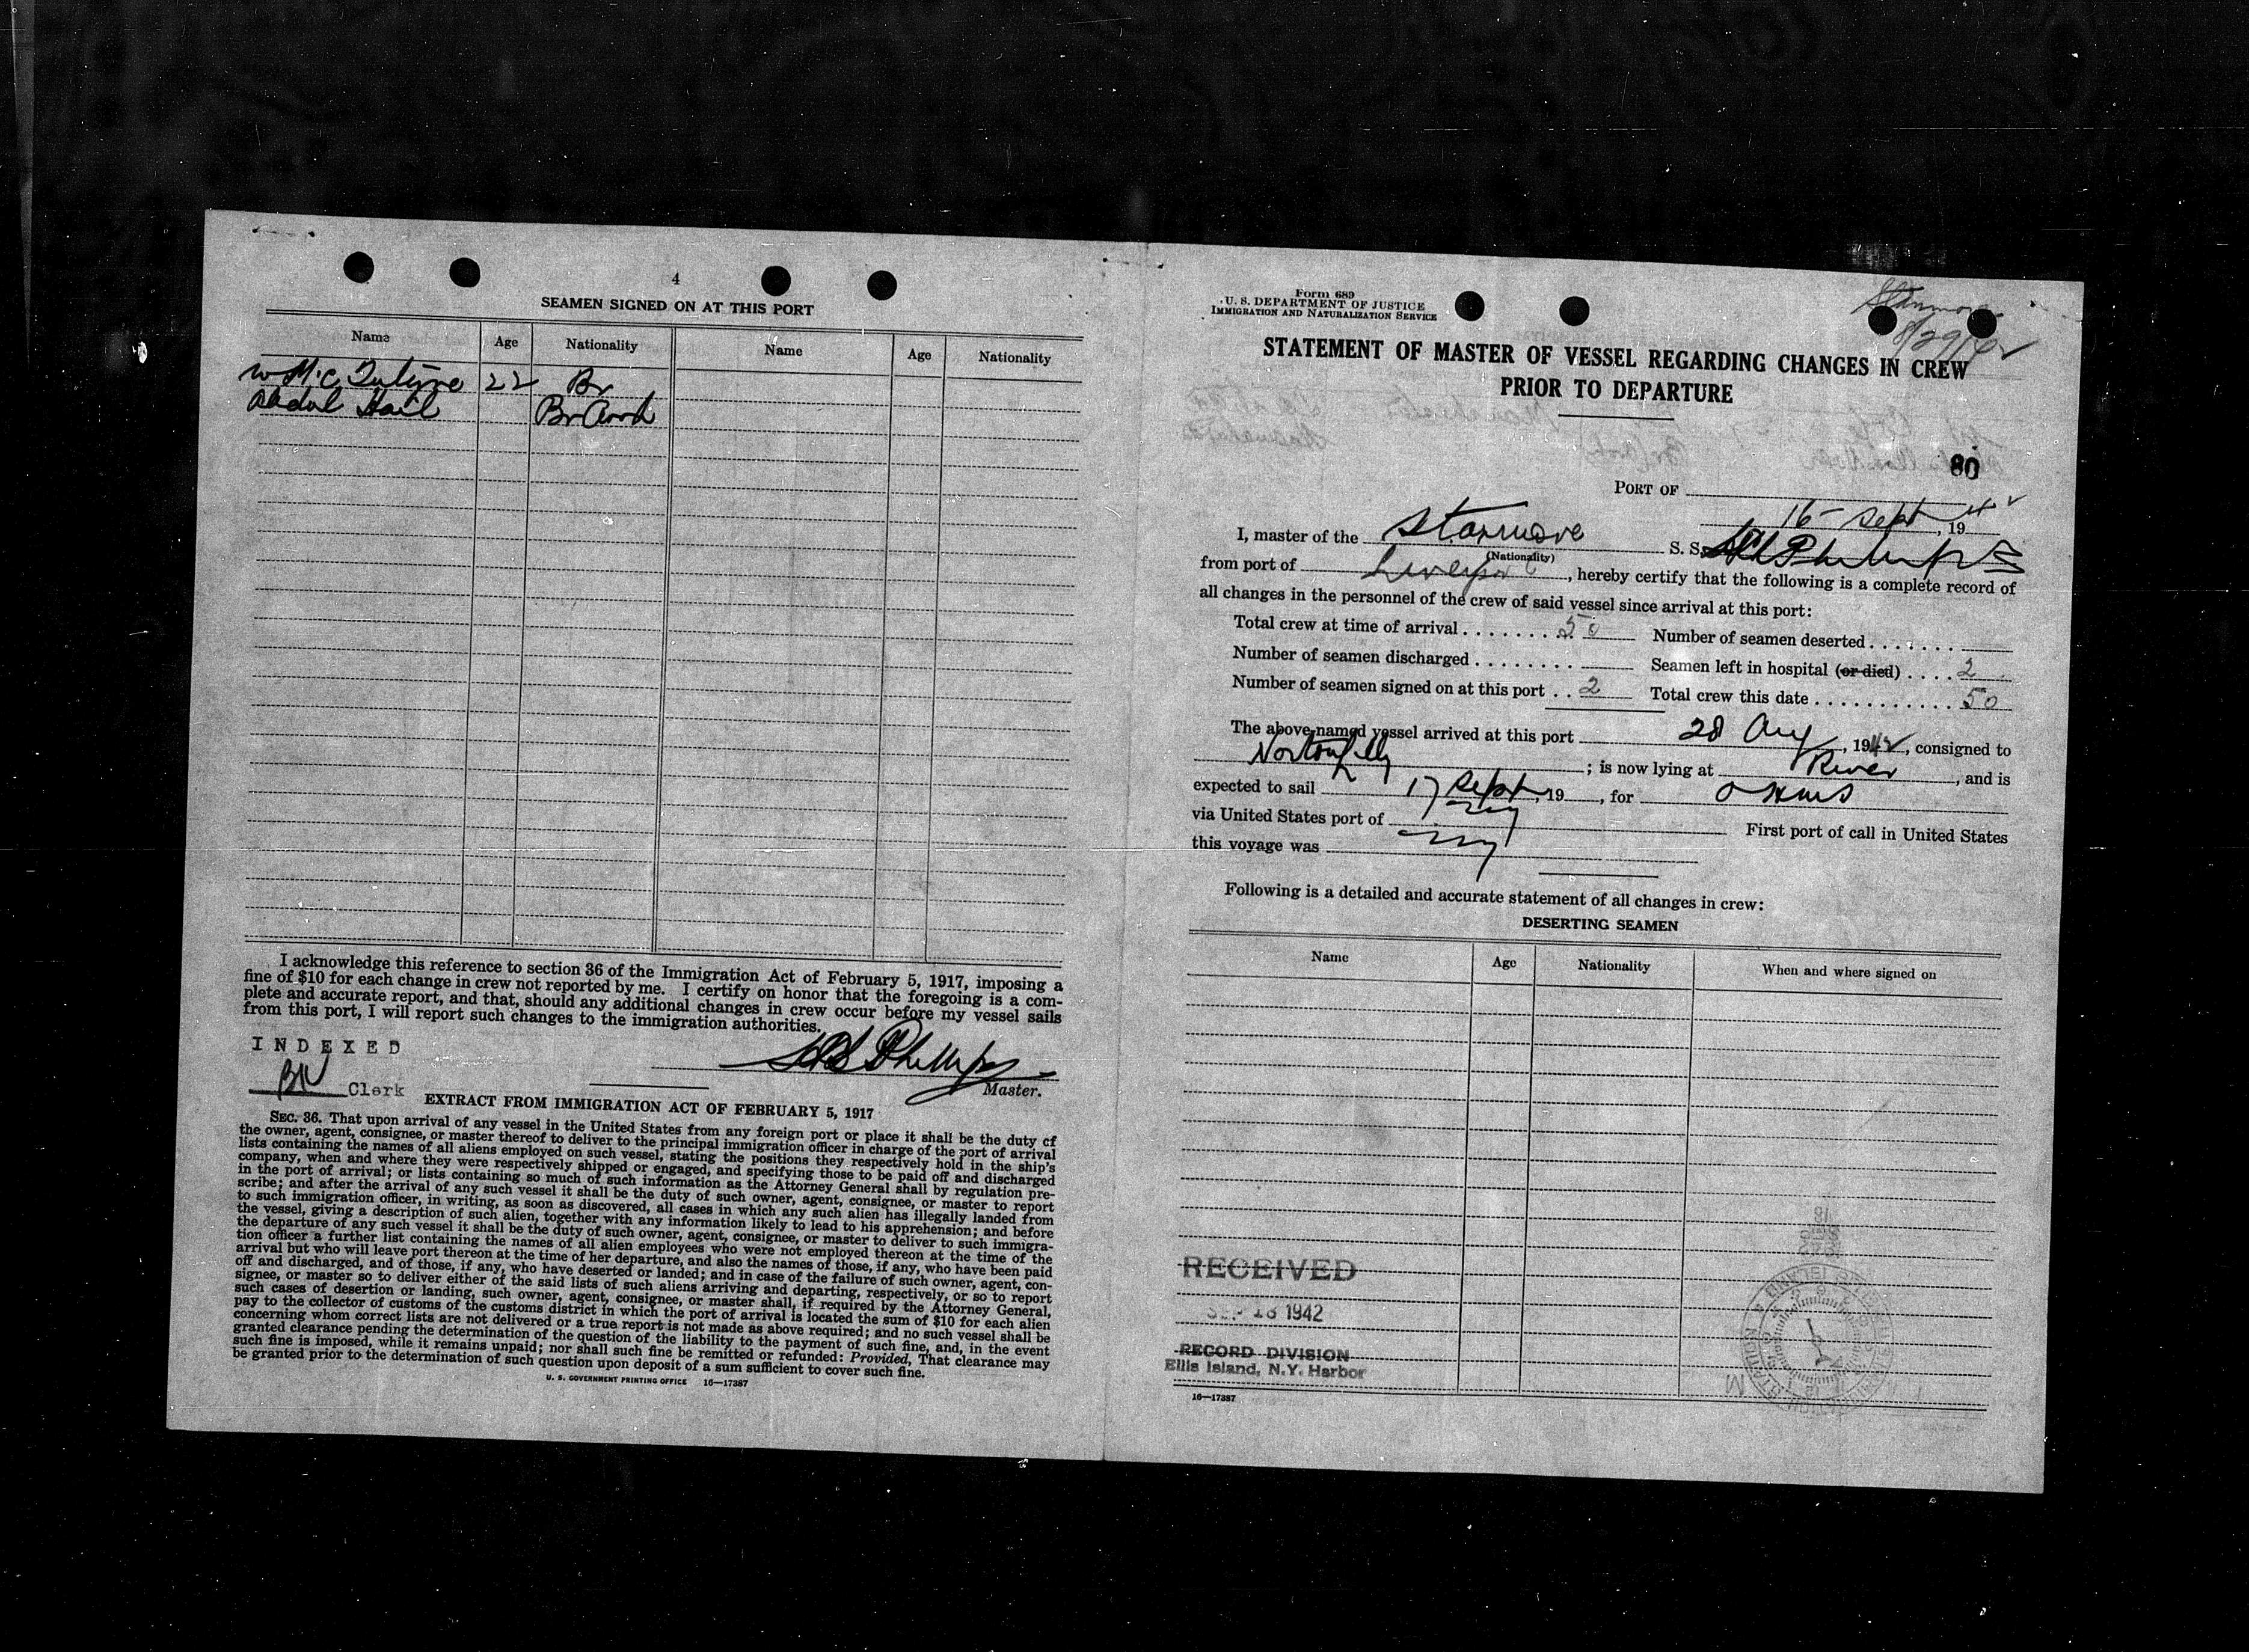 4
SEAMEN SIGNED ON AT THIS PORT
Name Age Nationality Name Age Nationality
W Mc 22 Br
Abdul Br Arab
I acknowledge this reference to section 36 of the Immigration Act of February 5, 1917, imposing a
fine of $10 for each change in crew not reported by me. I certify on honor that the foregoing is a com-
plete and accurate report, and that, should any additional changes in crew occur before my vessel sails
from this port, I will report such changes to the immigration authorities.
INDEXED
Phillips
Clerk Master.
EXTRACT FROM IMMIGRATION ACT OF FEBRUARY 5, 1917
SEC. 36. That upon arrival of any vessel in the United States from any foreign port or place it shall be the duty of
the owner, agent, consignee, or master thereof to deliver to the principal immigration officer in charge of the port of arrival
lists containing the names of all aliens employed on such vessel, stating the positions they respectively hold in the ship's
company, when and where they were respectively shipped or engaged, and specifying those to be paid off and discharged
in the port of arrival; or lists containing so much of such information as the Attorney General shall by regulation pre-
scribe; and after the arrival of any such vessel it shall be the duty of such owner, agent, consignee, or master to report
to such immigration officer, in writing, as soon as discovered, all cases in which any such alien has illegally landed from
the vessel, giving a description of such alien, together with any information likely to lead to his apprehension; and before
the departure of any such vessel it shall be the duty of such owner, agent, consignee, or master to deliver to such immigra-
tion officer a further list containing the names of all alien employees who were not employed thereon at the time of the
arrival but who will leave port thereon at the time of her departure, and also the names of those, if any, who have been paid
off and discharged, and of those, if any, who have deserted or landed; and in case of the failure of such owner, agent, con-
signee, or master so to deliver either of the said lists of such aliens arriving and departing, respectively, or so to report
such cases of desertion or landing, such owner, agent, consignee, or master shall, if required by the Attorney General,
pay to the collector of customs of the customs district in which the port of arrival is located the sum of $10 for each alien
concerning whom correct lists are not delivered or a true report is not made as above required; and no such vessel shall be
granted clearance pending the determination of the question of the liability to the payment of such fine, and, in the event
such fine is imposed, while it remains unpaid; nor shall such fine be remitted or refunded: Provided, That clearance may
be granted prior to the determination of such question upon deposit of a sum sufficient to cover such fine.
U. S. GOVERNMENT PRINTING OFFICE 16—17387
Form 689
U. S. DEPARTMENT OF JUSTICE
IMMIGRATION AND NATURALIZATION SERVICE
Stanmore
8/29/42
STATEMENT OF MASTER OF VESSEL REGARDING CHANGES IN CREW
PRIOR TO DEPARTURE
80
PORT OF
16 Sept, 1942
I, master of the Stanmore S. S. Phillips
(Nationality)
from port of Liverpool, hereby certify that the following is a complete record of
all changes in the personnel of the crew of said vessel since arrival at this port:
Total crew at time of arrival 50 Number of seamen deserted
Number of seamen discharged Seamen left in hospital (or died) 2
Number of seamen signed on at this port 2 Total crew this date 50
The above-named vessel arrived at this port 28 Aug, 1942, consigned to
Norton Lilly; is now lying at River, and is
expected to sail 17 Sept, 19, for
via United States port of NY First port of call in United States
this voyage was NY
Following is a detailed and accurate statement of all changes in crew:
DESERTING SEAMEN
Name Age Nationality When and where signed on
RECEIVED
SEP 18 1942
RECORD DIVISION
Ellis Island, N.Y. Harbor
16—17387